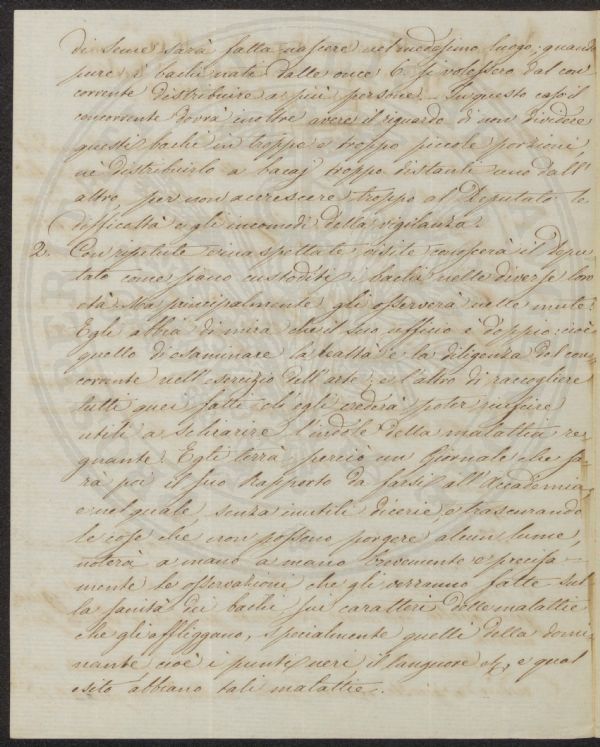 di seme sarà fatta nascere nel medesimo luogo; quando
pure i bachi nati dalle once 6. si volessero dal con
corrente distribuire a più persone. In questo caso il
concorrente dovrà inoltre avere il riguardo di non dividere
questi bachi in troppe e troppo piccole porzioni,
nè distribuirlo a bacaj troppo distanti uno dall'
altro, per non accrescere troppo al Deputato le
difficoltà e gli incomodi della vigilanza.
2. Con ripetute e inaspettate visite conoscerà il Depu
tato come siano custoditi i bachi nelle diverse loro
età. Ma principalmente gli osserverà nelle mute.
Egli abbia di mira che il suo uffizio è doppio: cioè
quello di esaminare la esattezza e la diligenza del con
corrente nell'esercizio dell'arte; e l'altro di raccogliere
tutti quei fatti ch'egli crederà poter riuscire
utili a schiarire l'indole della malattia re
gnante. Egli terrà perciò un Giornale che fa
rà poi il suo Rapporto da farsi all'Accademia,
e nel quale, senza inutili dicerie, e trascurando
le cose che non possono porgere alcun lume,
noterà a mano a mano brevemente e precisa
mente le osservazioni che gli verranno fatte sul
la sanità dei bachi, sui caratteri delle malattie
che gli affliggano, specialmente quelli della domi
nante cioè i punti neri il languore &c, e qual
esito abbiano tali malattie.